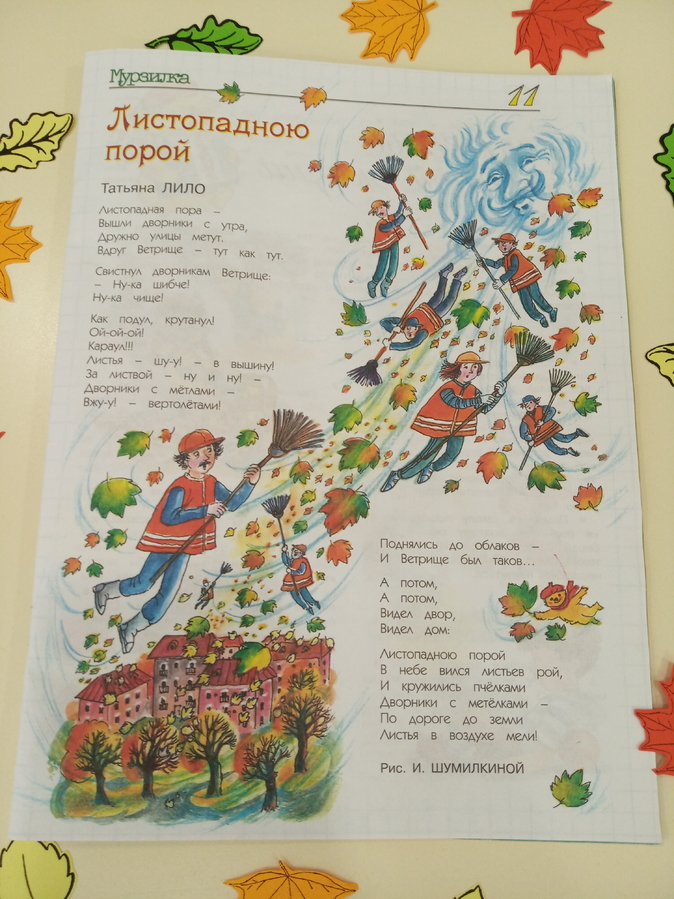 Мурзилка
11
Листопадною
порой
Татьяна ЛИЛО
Листопадная пора –
Вышли дворники с утра,
Дружно улицы метут.
Вдруг Ветрище – тут как тут.
Свистнул дворникам Ветрище:
– Ну-ка шибче!
Ну-ка чище!
Как подул, крутанул!
Ой-ой-ой!
Караул!!!
Листья – шу-у! – в вышину!
За листвой – ну и ну! –
Дворники с мётлами –
Вжу-у! – вертолётами!
Поднялись до облаков –
И Ветрище был таков...
А потом,
А потом,
Видел двор,
Видел дом:
Листопадною порой
В небе вился листьев рой,
И кружились пчёлками
Дворники с метёлками –
По дороге до земли
Листья в воздухе мели!
Рис. И. ШУМИЛКИНОЙ